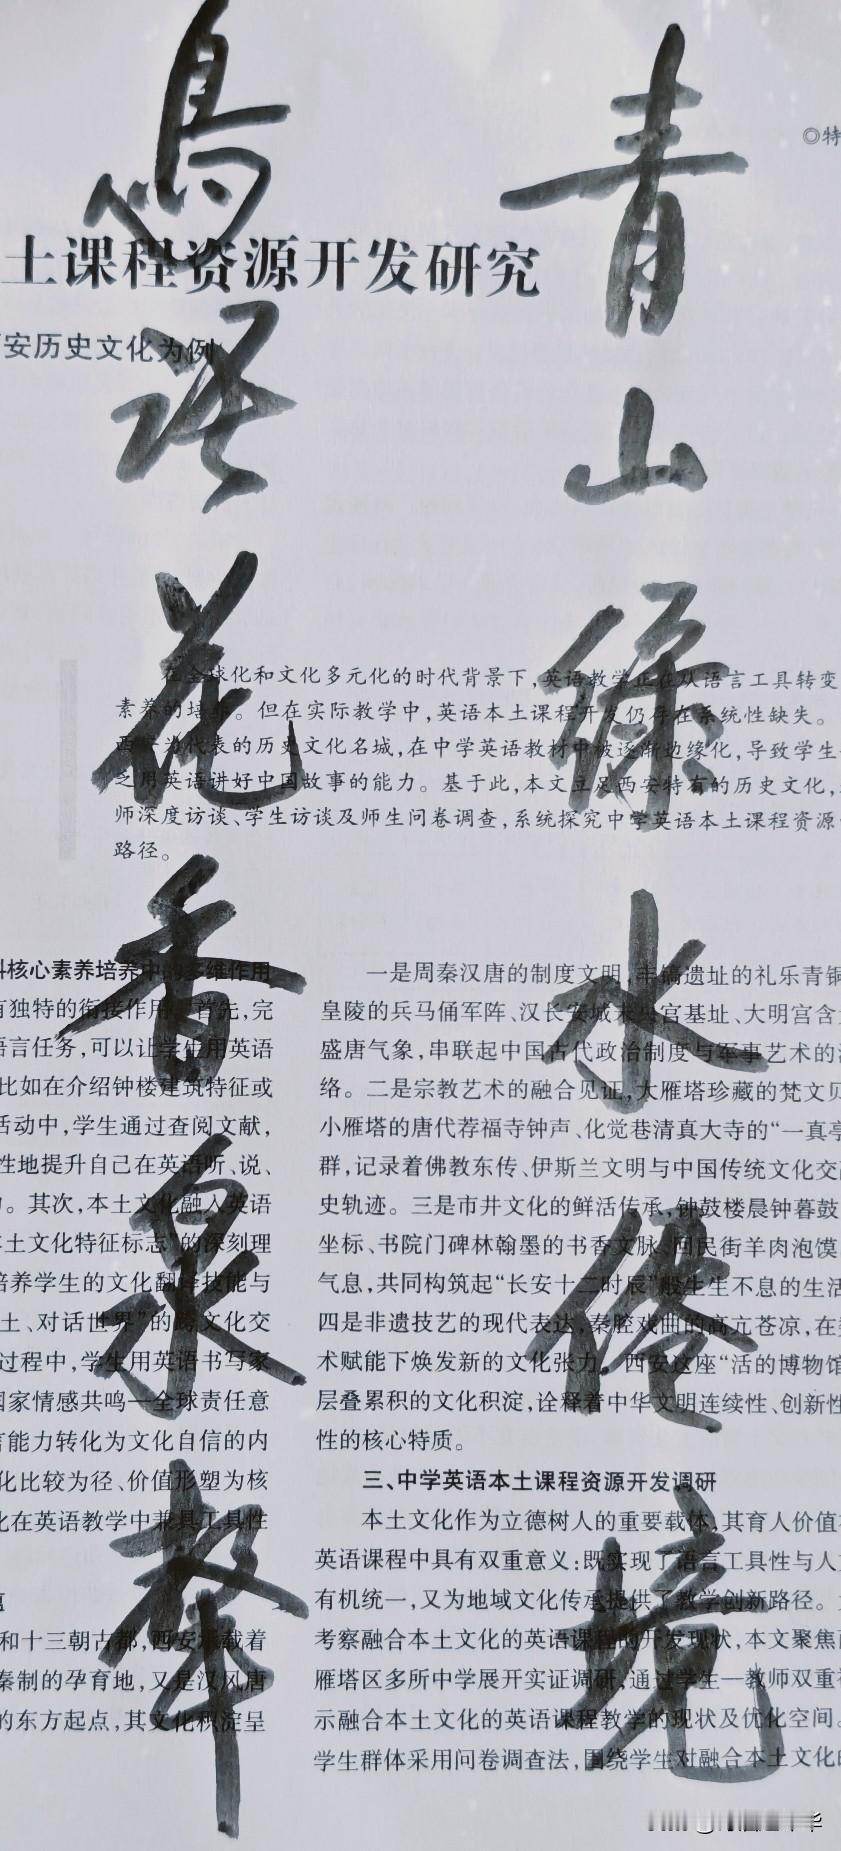 青山綠水僊境
鳥語花香泉
◎特
土课程资源开发研究
安历史文化为例
在全球化和文化多元化的时代背景下,英语教学正在从语言工具转变
素养的培养。但在实际教学中,英语本土课程开发仍存在系统性缺失。
西安为代表的历史文化名城,在中学英语教材中被逐渐边缘化,导致学生
乏用英语讲好中国故事的能力。基于此,本文立足西安特有的历史文化,
师深度访谈、学生访谈及师生问卷调查,系统探究中学英语本土课程资源
路径。
科核心素养培养中的多维作用
有独特的衔接作用。首先,完
语言任务,可以让学生用英语
比如在介绍钟楼建筑特征或
活动中,学生通过查阅文献,
性地提升自己在英语听、说、
。其次,本土文化融入英语
本土文化特征标志”的深刻理
培养学生的文化翻译技能与
土、对话世界”的跨文化交
过程中,学生用英语书写家
国家情感共鸣—全球责任意
言能力转化为文化自信的内
化比较为径、价值形塑为核
化在英语教学中兼具工具性
和十三朝古都,西安承载着
秦制的孕育地,又是汉风唐
的东方起点,其文化积淀呈
一是周秦汉唐的制度文明,丰镐遗址的礼乐青铜
皇陵的兵马俑军阵、汉长安城未央宫基址、大明宫含
盛唐气象,串联起中国古代政治制度与军事艺术的
络。二是宗教艺术的融合见证,大雁塔珍藏的梵文贝
小雁塔的唐代荐福寺钟声、化觉巷清真大寺的“一真亭
群,记录着佛教东传、伊斯兰文明与中国传统文化交
史轨迹。三是市井文化的鲜活传承,钟鼓楼晨钟暮鼓
坐标、书院门碑林翰墨的书香文脉、回民街羊肉泡馍
气息,共同构筑起“长安十二时辰”般生生不息的生活
四是非遗技艺的现代表达,秦腔戏曲的高亢苍凉,在
术赋能下焕发新的文化张力。西安这座“活的博物馆
层叠累积的文化积淀,诠释着中华文明连续性、创新性
性的核心特质。
三、中学英语本土课程资源开发调研
本土文化作为立德树人的重要载体,其育人价值
英语课程中具有双重意义:既实现了语言工具性与人
有机统一,又为地域文化传承提供了教学创新路径。
考察融合本土文化的英语课程的开发现状,本文聚焦
雁塔区多所中学展开实证调研,通过学生—教师双重
示融合本土文化的英语课程教学的现状及优化空间。
学生群体采用问卷调查法,围绕学生对融合本土文化的